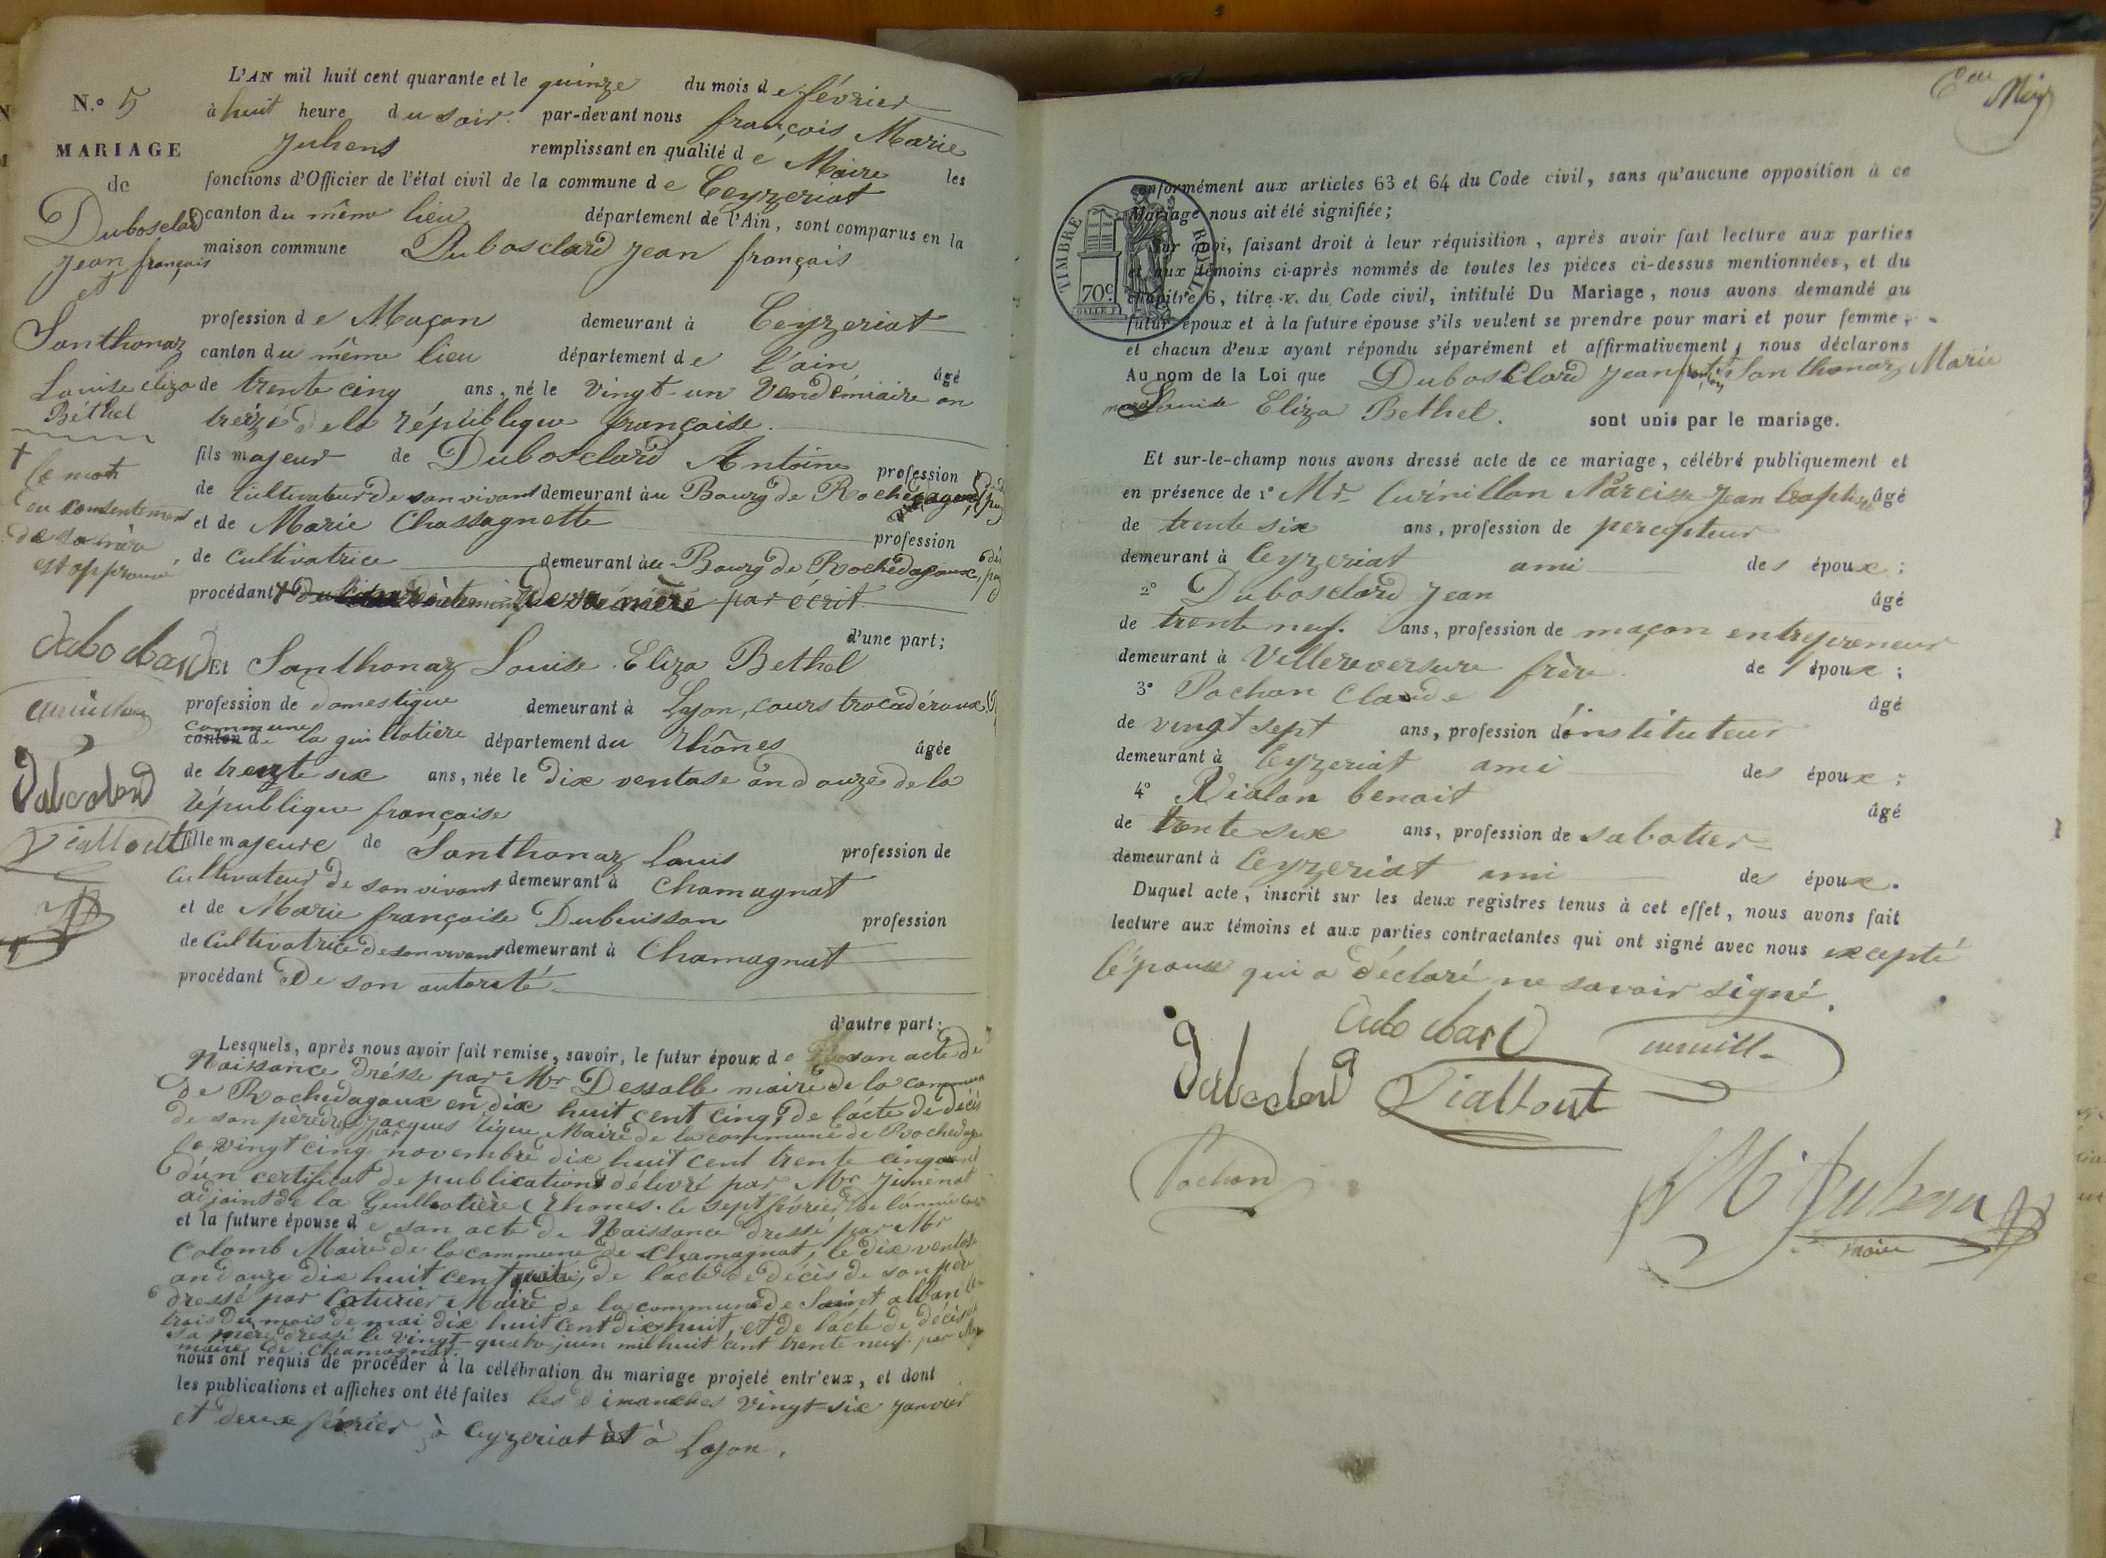 L'AN mil huit cent quarante et le quinze du mois de février
N.° 5
à huit heure du soir par-devant nous françois Marie
MARIAGE
Juhens remplissant en qualité de Maire les
de
fonctions d'Officier de l'état civil de la commune de Ceyzeriat
Dubosclard
canton du même lieu département de l'Ain, sont comparus en la
Jean françois
maison commune Dubosclard Jean françois
et
Santhonaz
Louise eliza
Béthel
profession de Maçon demeurant à Ceyzeriat
canton du même lieu département de l'ain âgé
de trente cinq ans, né le vingt-un Vendémiaire an
treize de la république française.
fils majeur de Dubosclard Antoine profession
de Cultivateur de son vivant demeurant au Bourg de Rochedagoux
et de Marie Chassagnette profession
de Cultivatrice demeurant au Bourg de Rochedagoux
procédant de sa mère par écrit
d'une part;
+ le mot
au consentement
de sa mère
est approuvé
Et Santhonaz Louise Eliza Bethel
profession de domestique demeurant à Lyon, cours trocadéroux
commune
canton de la guillotière département du Rhônes âgée
de trente six ans, née le dix ventose an douze de la
république française
fille majeure de Santhonaz Louis profession de
Cultivateur de son vivant demeurant à Chamagnat
et de Marie françoise Dubuisson profession
de Cultivatrice de son vivant demeurant à Chamagnat
procédant De son autorité
d'autre part;
Lesquels, après nous avoir fait remise, savoir, le futur époux de son acte de
Naissance dressé par Mr Dessalle maire de la commune
de Rochedagoux en dix huit cent cinq; de l'acte de décès
de son père par Jacques Maire de la commune de Rochedagoux
le vingt cinq novembre dix huit cent trente cinq
d'un certificat de publications délivré par Mr Jimenat
adjoint de la Guillotière (Rhones. le sept février de l'année
et la future épouse de son acte de Naissance dressé par Mr
Colomb Maire de la commune de Chamagnat, le dix ventose
an douze dix huit cent quatre, de l'acte de décès de son père
dressé par Maire de la commune de Saint alban le
trois du mois de mai dix huit cent dix huit, et de l'acte de décès de
sa mère dressé le vingt-quatre juin mil huit cent trente neuf par
maire de Chamagnat.
nous ont requis de procéder à la célébration du mariage projeté entr'eux, et dont
les publications et affiches ont été faites les dimanches vingt-six janvier
et deux février à Ceyzeriat et à Lyon.
conformément aux articles 63 et 64 du Code civil, sans qu'aucune opposition à ce
Mariage nous ait été signifiée;
Sur quoi, faisant droit à leur réquisition, après avoir fait lecture aux parties
et aux témoins ci-après nommés de toutes les pièces ci-dessus mentionnées, et du
chapitre 6, titre v. du Code civil, intitulé Du Mariage, nous avons demandé au
futur époux et à la future épouse s'ils veulent se prendre pour mari et pour femme,
et chacun d'eux ayant répondu séparément et affirmativement, nous déclarons
Au nom de la Loi que Dubosclard Jean françois et Santhonaz Marie
Louise Eliza Bethel. sont unis par le mariage.
TIMBRE ROYAL
70c
Et sur-le-champ nous avons dressé acte de ce mariage, célébré publiquement et
en présence de 1° Mr Curénillon Narcisse Jean baptiste âgé
de trente six ans, profession de percepteur
demeurant à Ceyzeriat ami des époux;
2° Dubosclard Jean âgé
de trente neuf. ans, profession de maçon entrepreneur
demeurant à Villereversure frère de époux;
3° Pochon Claude âgé
de vingt sept ans, profession d'instituteur
demeurant à Ceyzeriat ami des époux;
4° Vialon benoit âgé
de trente six ans, profession de sabotier
demeurant à Ceyzeriat ami des époux.
Duquel acte, inscrit sur les deux registres tenus à cet effet, nous avons fait
lecture aux témoins et aux parties contractantes qui ont signé avec nous excepté
l'épouse qui a déclaré ne savoir signé.
Pochon
maire